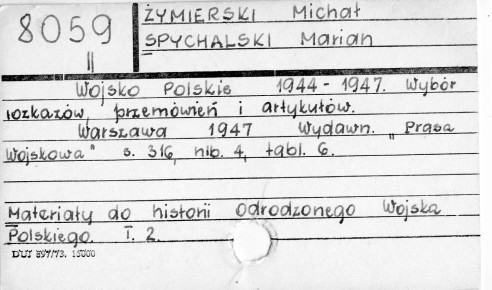 8059
II
ŻYMIERSKI Michał
SPYCHALSKI Marian
Wojsko Polskie 1944-1947. Wybór
rozkazów, przemówień i artykułów.
Warszawa 1947 Wydawn. "Prasa
Wojskowa" s. 316, nlb. 4, tabl. 6.
Materiały do historii Odrodzonego Wojska
Polskiego. T. 2.
DUJ 897/73. 15000